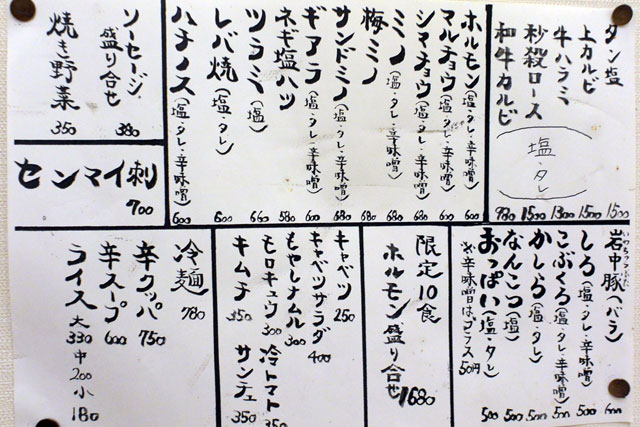 タン塩 1500
上カルビ 1500
牛ハラミ 1300
秒殺ロース 1500
和牛カルビ 980
塩・タレ
ホルモン(塩・タレ・辛味噌) 600
マルチョウ(塩・タレ・辛味噌) 600
シマチョウ(塩・タレ・辛味噌) 680
ミノ(塩・タレ・辛味噌) 680
梅ミノ 680
サンドミノ(塩・タレ・辛味噌) 680
ギアラ(塩・タレ・辛味噌) 600
ネギ塩ハツ 580
ツラミ(塩) 660
レバ焼(塩・タレ) 600
ハチノス(塩・タレ・辛味噌) 600
ソーセージ盛り合せ 380
焼き野菜 350
センマイ刺 700
岩中豚(バラ) 600
いわちゅうぶた
しろ(塩・タレ・辛味噌) 500
こぶくろ(塩・タレ・辛味噌) 500
かしら(塩・タレ) 500
なんこつ(塩) 500
おっぱい(塩・タレ) 500
※辛味噌はプラス50円
限定10食
ホルモン盛り合せ 1680
キャベツ 250
キャベツサラダ 400
もやしナムル 300
モロキュウ 300
キムチ 350
冷トマト 350
サンチュ 350
冷麺 780
辛クッパ 750
辛スープ 600
ライス 大330 中200 小180